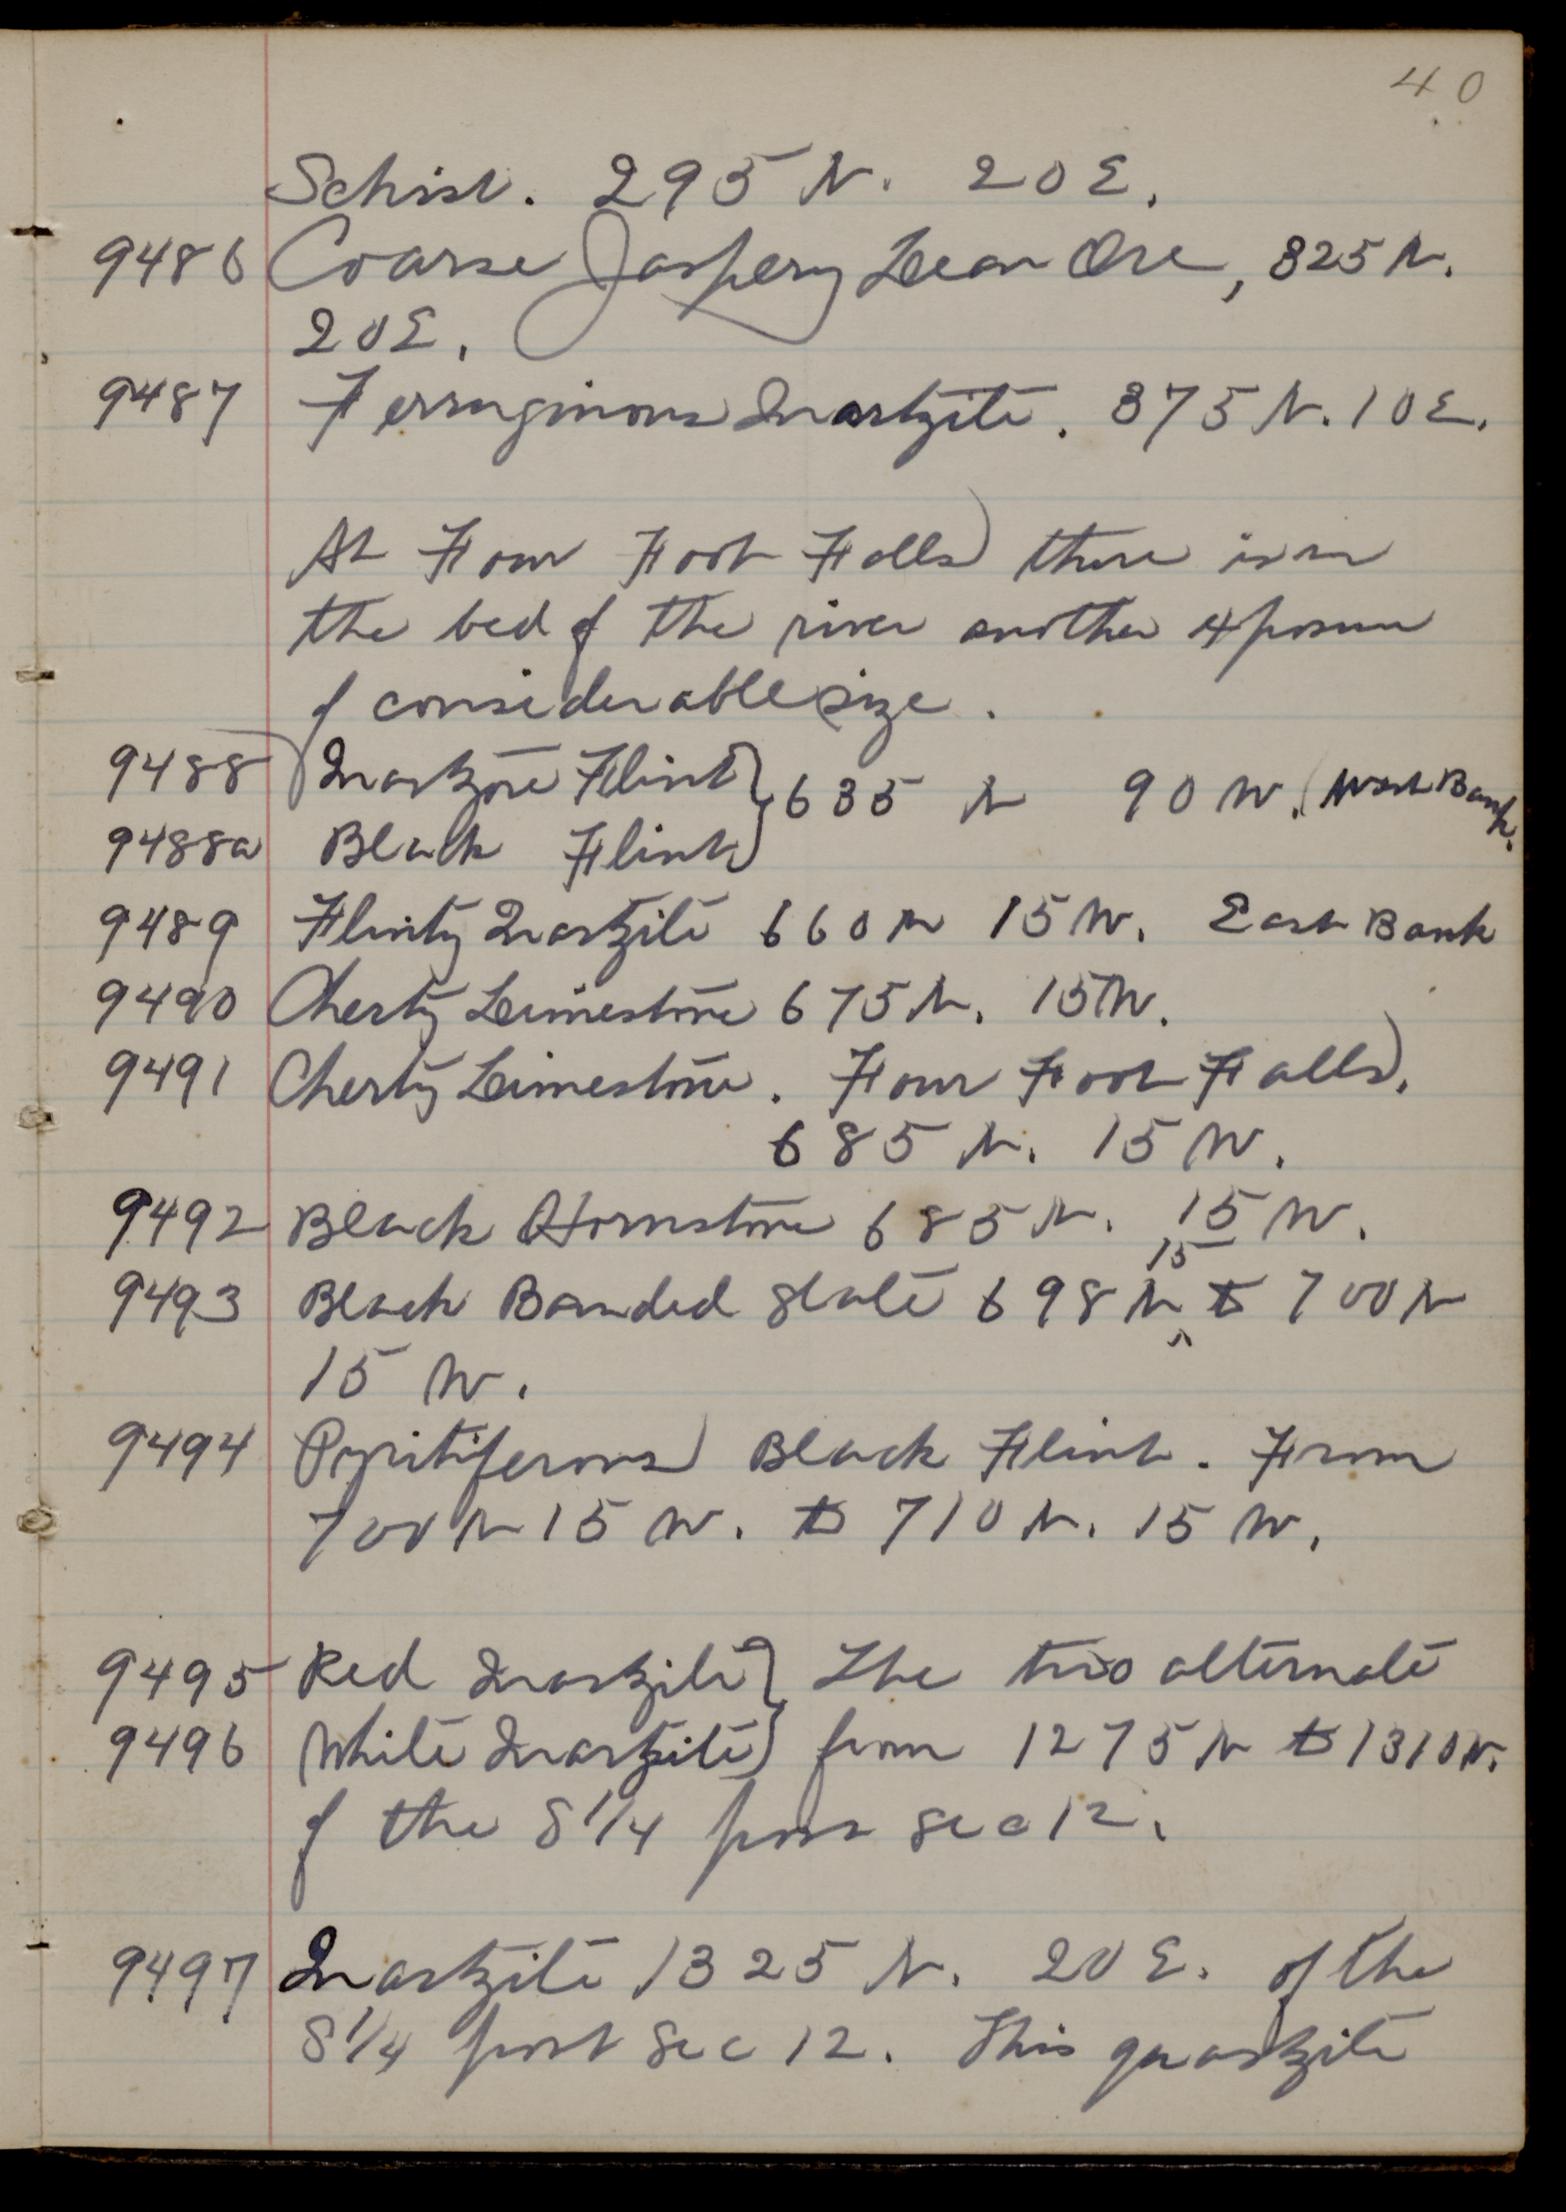 40
Schist. 295 N. 20 E.
9486 Coarse Jaspery Lean Ore, 825 N.
20 E.
9487 Ferruginous Quartzite. 875 N. 10 E.
At Four Foot Falls there is in
the bed of the river another exposure
of considerable size.
9488 Quartzose Flint } 635 N 90 W. (West Bank.
9488a Black Flint }
9489 Flinty Quartzite 660 N 15 W. East Bank
9490 Cherty Limestone 675 N. 15 W.
9491 Cherty Limestone. Four Foot Falls.
685 N. 15 W.
9492 Black Hornstone 685 N. 15 W.
15
9493 Black Banded Slate 698 N ^ to 700 N
15 W.
9494 Pyritiferous Black Flint. From
700 N 15 W. to 710 N. 15 W.
9495 Red Quartzite } The two alternate
9496 White Quartzite } from 1275 N to 1310 N.
of the S 1/4 post Sec 12.
9497 Quartzite 1325 N. 20 E. of the
S 1/4 post Sec 12. This quartzite